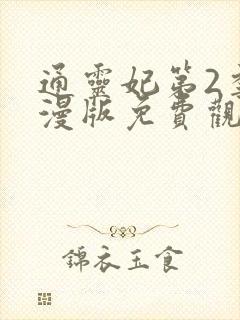 通靈妃第2季
漫版免費觀
錦衣玉食